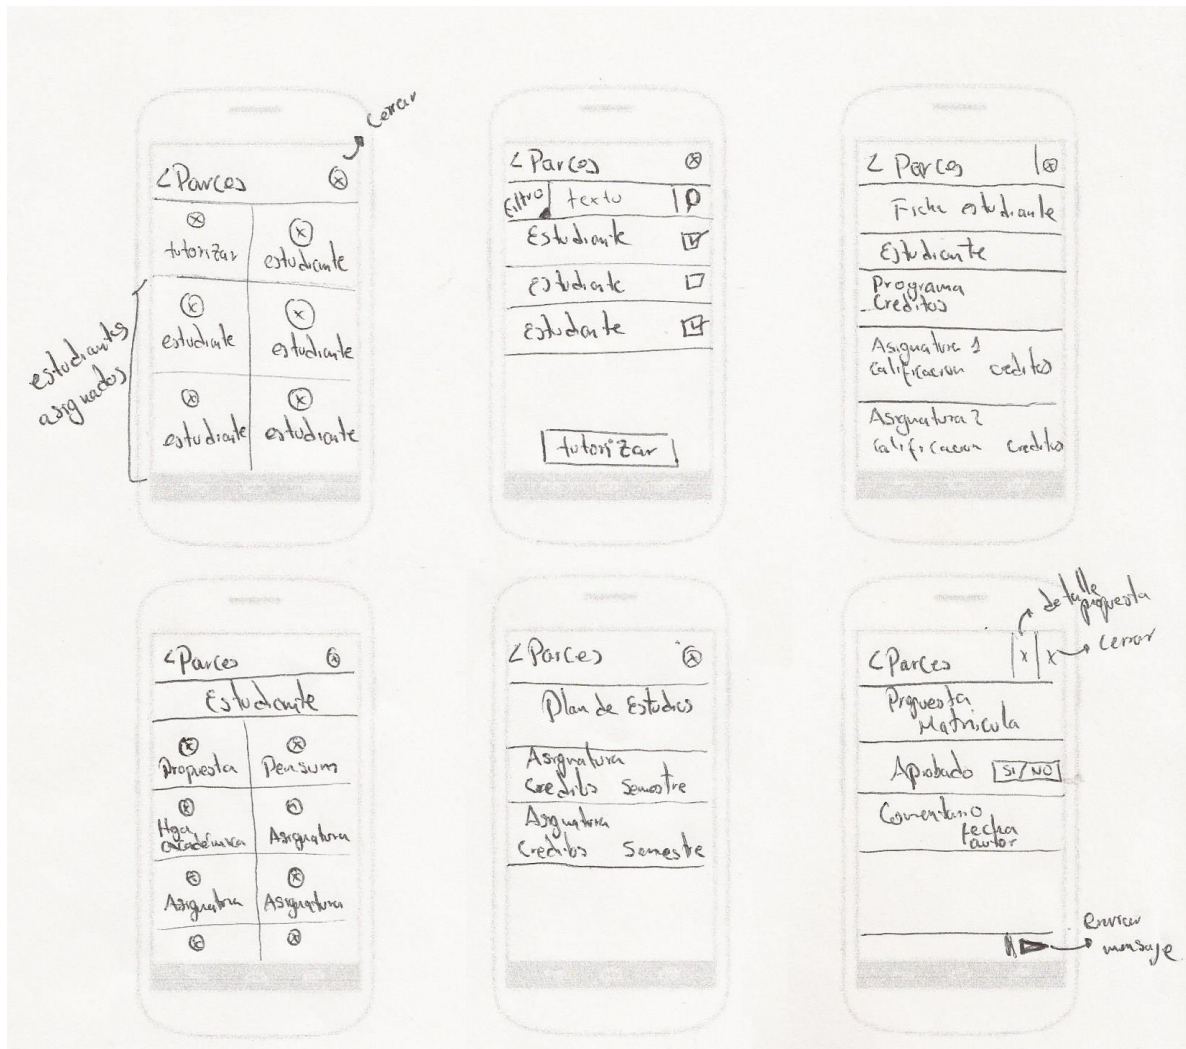 cerrar
< Parces
tutorizar
estudiante
estudiante
estudiante
estudiante
estudiante
estudiantes
asignados
< Parces
Filtro texto
Estudiante
estudiante
Estudiante
tutorizar
< Parces
Ficha estudiante
Estudiante
Programa
Creditos
Asignatura 1
Calificacion creditos
Asignatura 2
Calificacion Creditos
< Parces
Estudiante
Propuesta Pensum
academica Asignatura
Asignatura Asignatura
< Parces
Plan de Estudios
Asignatura
Creditos Semestre
Asignatura
Creditos Semestre
detalle
propuesta
cerrar
< Parces x x
Propuesta
Matricula
Aprobado SI/NO
Comentario
fecha
autor
enviar
mensaje